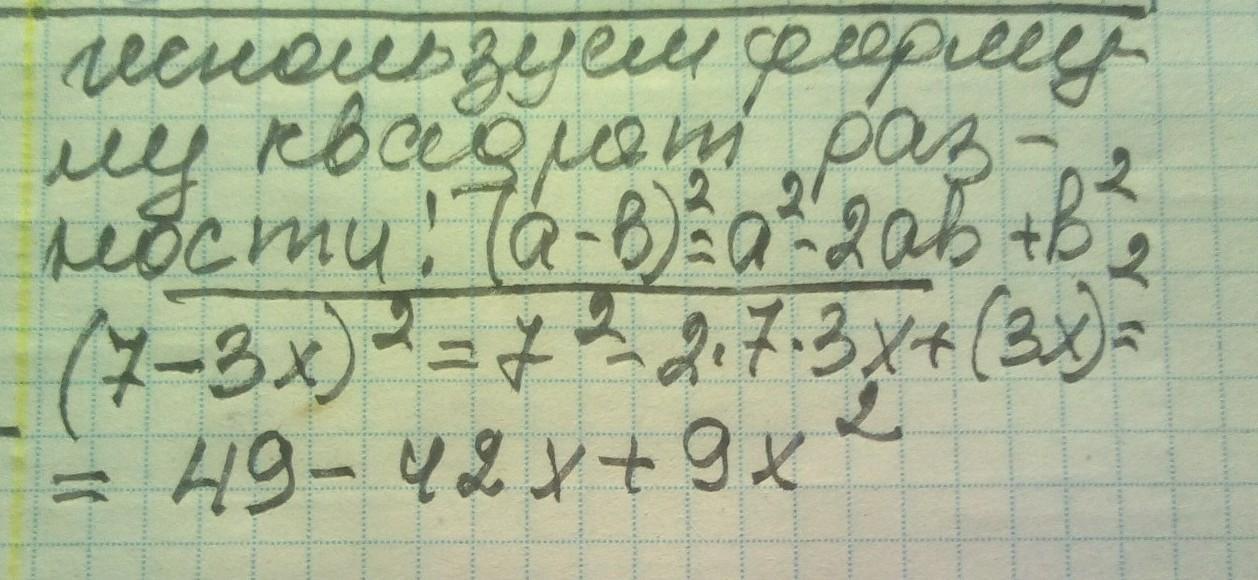 используем форму-
лу квадрат раз-
ности: (a-b)²=a²-2ab+b²
(7-3x)²=7²-2·7·3x+(3x)²=
= 49-42x+9x²